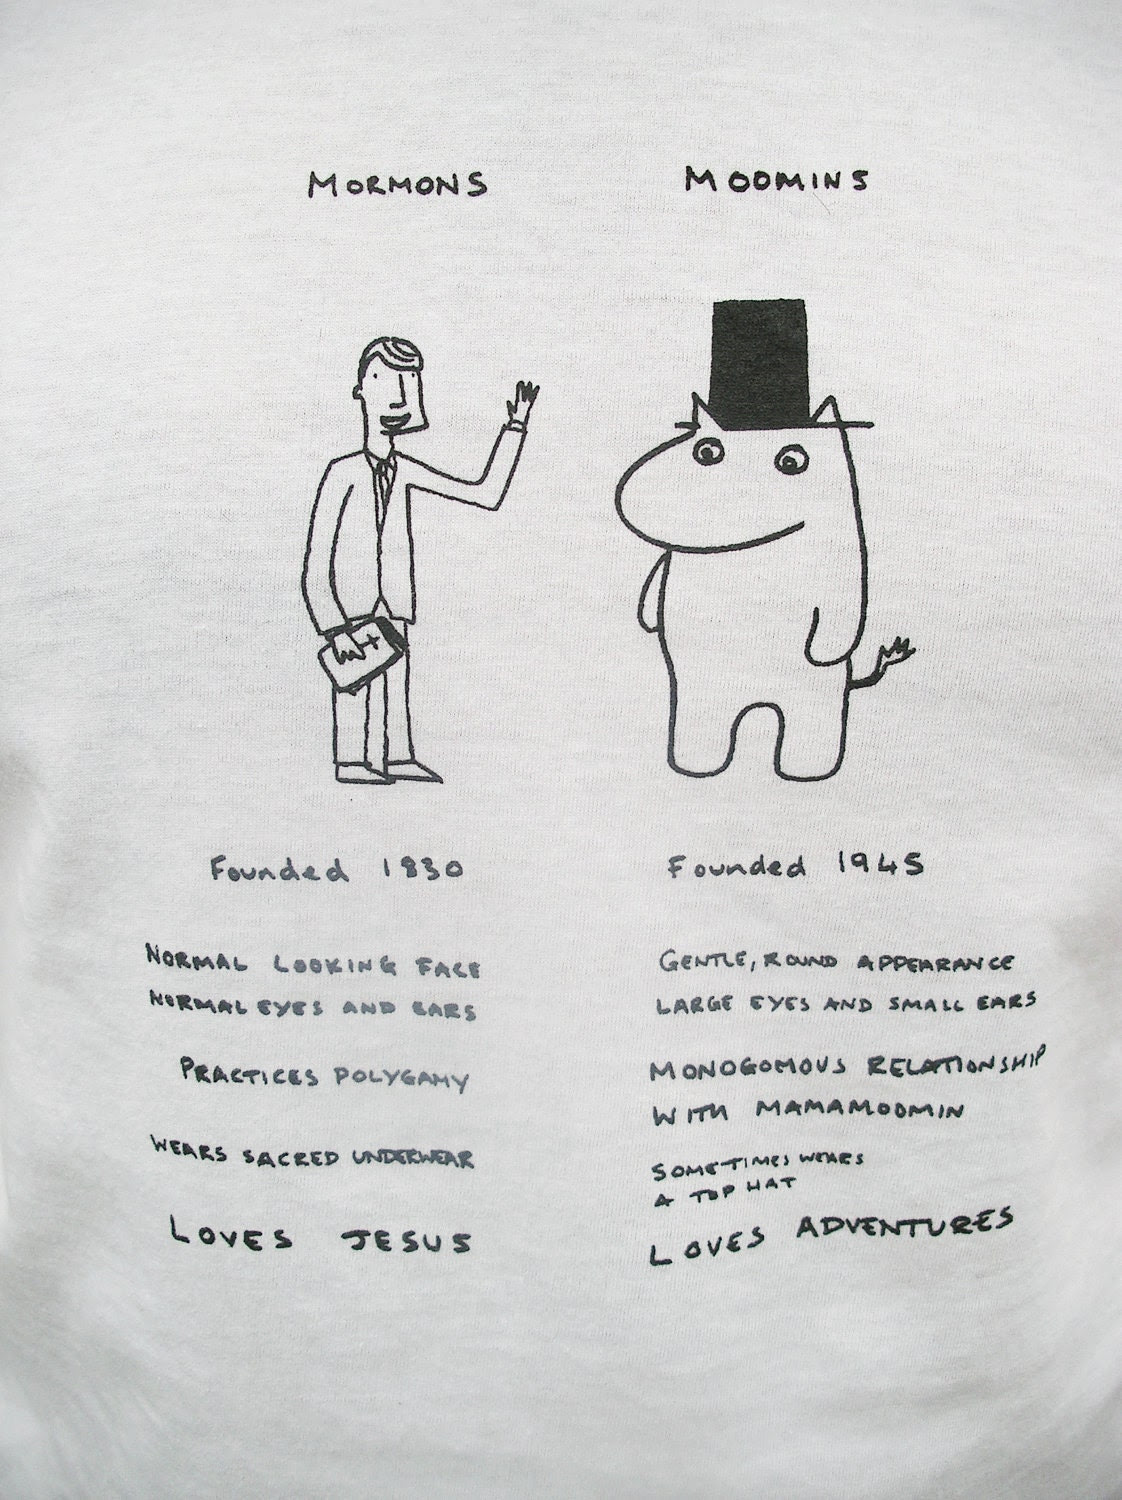 MORMONS
MOOMINS
Founded 1830
NORMAL LOOKING FACE
NORMAL EYES AND EARS
PRACTICES POLYGAMY
WEARS SACRED UNDERWEAR
LOVES JESUS
Founded 1945
GENTLE, ROUND APPEARANCE
LARGE EYES AND SMALL EARS
MONOGOMOUS RELATIONSHIP
WITH MAMAMOOMIN
SOMETIMES WEARS
A TOP HAT
LOVES ADVENTURES